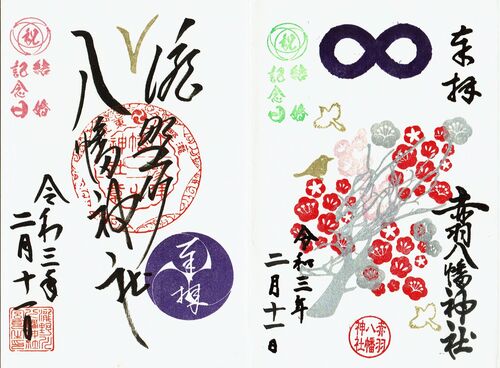 奉拝
赤羽八幡神社
令和三年
二月十一日
祝
結婚
記念日
赤羽
八幡
神社
滝野川
八幡神社
奉拝
令和三年
二月十一日
祝
結婚
記念日